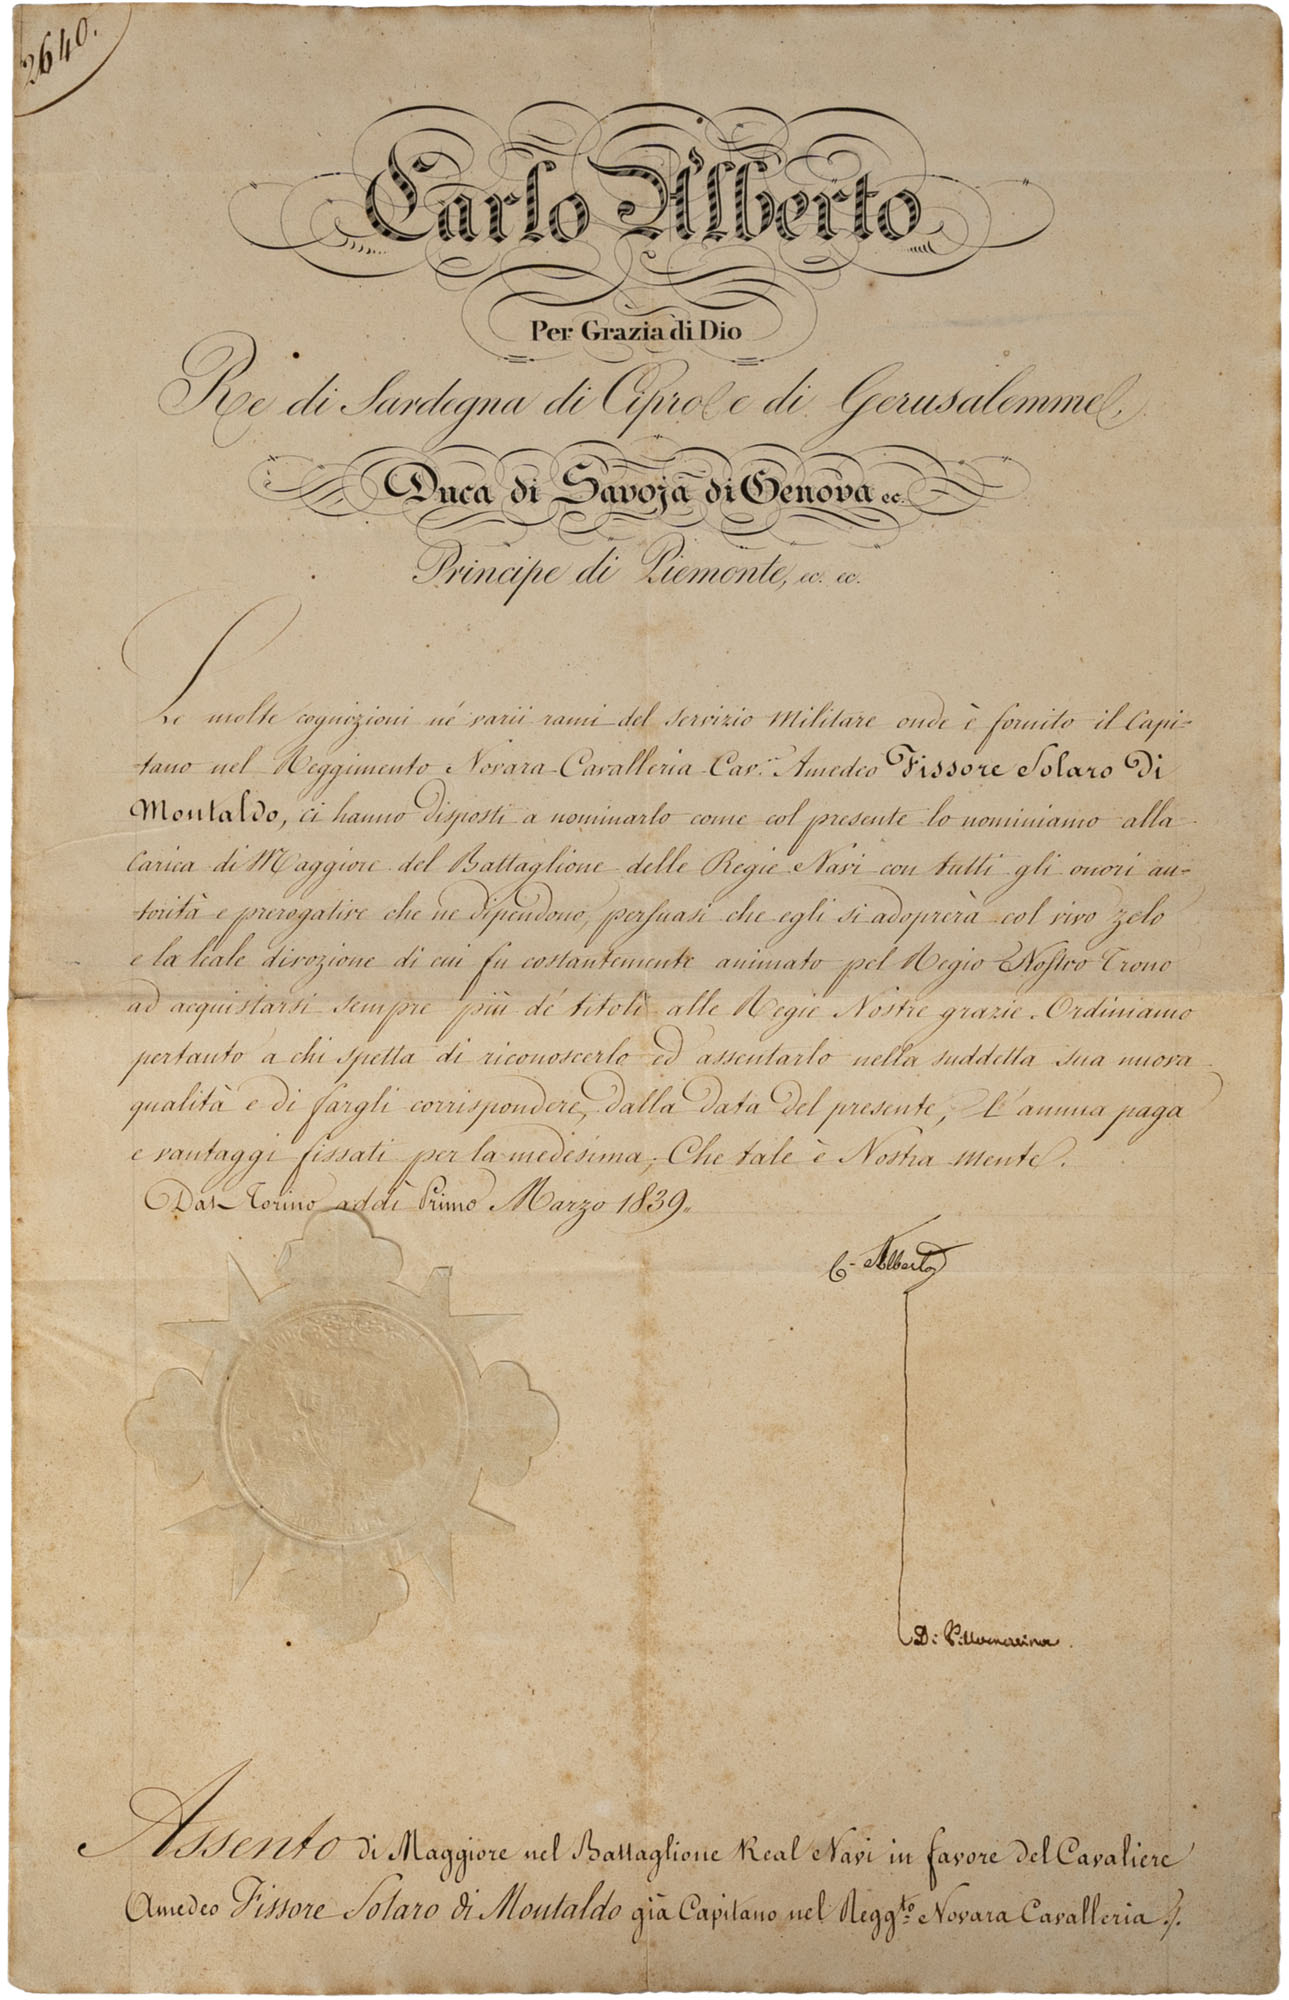 2640.
Carlo Alberto
Per Grazia di Dio
Re di Sardegna di Cipro e di Gerusalemme,
Duca di Savoja di Genova ec.
Principe di Piemonte, ec. ec.
Le molte cognizioni né varii rami del servizio Militare onde è fornito il Capi-
tano nel Reggimento Novara Cavalleria Cav.re Amedeo Fissore Solaro Di
Montaldo, ci hanno disposti a nominarlo come col presente lo nominiamo alla
Carica di Maggiore del Battaglione delle Regie Navi con tutti gli onori au-
torità e prerogative che ne dipendono, persuasi che egli si adoprerà col vivo zelo
e la leale divozione di cui fu costantemente animato pel Regio Nostro Trono
ad acquistarsi sempre più dé titoli alle Regie Nostre grazie. Ordiniamo
pertanto a chi spetta di riconoscerlo ed assentarlo nella suddetta sua nuova
qualità e di fargli corrispondere, dalla data del presente, l'annua paga
e vantaggi fissati per la medesima; Che tale è Nostra mente.
Dat. Torino addì Primo Marzo 1839.
C. Alberto
Di Villamarina.
Assento di Maggiore nel Battaglione Real Navi in favore del Cavaliere
Amedeo Fissore Solaro di Montaldo già Capitano nel Regg.to Novara Cavalleria.